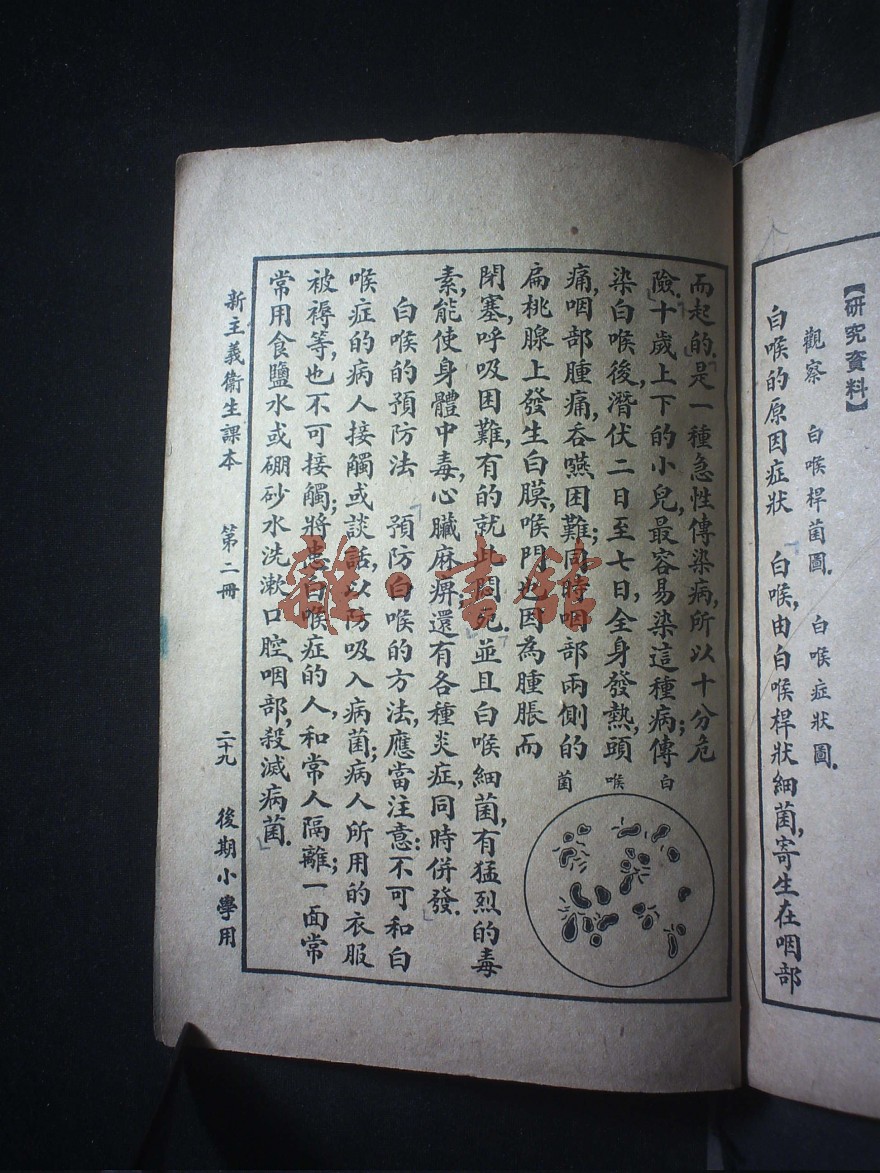 【研究資料】
觀察　白喉桿菌圖．　白喉症狀圖．
白喉的原因症狀　白喉，由白喉桿狀細菌，寄生在咽部
而起的．是一種急性傳染病，所以十分危
險．十歲上下的小兒，最容易染這種病；傳
染白喉後，潛伏二日至七日，全身發熱，頭
痛，咽部腫痛，吞嚥困難；同時咽部兩側的
扁桃腺上發生白膜，喉門也因為腫脹而
閉塞，呼吸困難，有的就此悶死．並且白喉細菌，有猛烈的毒
素，能使身體中毒，心臟麻痹；還有各種炎症，同時併發．
白喉的預防法　預防白喉的方法，應當注意：不可和白
喉症的病人接觸或談話，以防吸入病菌；病人所用的衣服
被褥等，也不可接觸；將患白喉症的人，和常人隔離；一面常
常用食鹽水或硼砂水洗漱口腔，咽部，殺滅病菌．
白喉菌
新主義衞生課本　第二冊　二十九　後期小學用
雜·書館